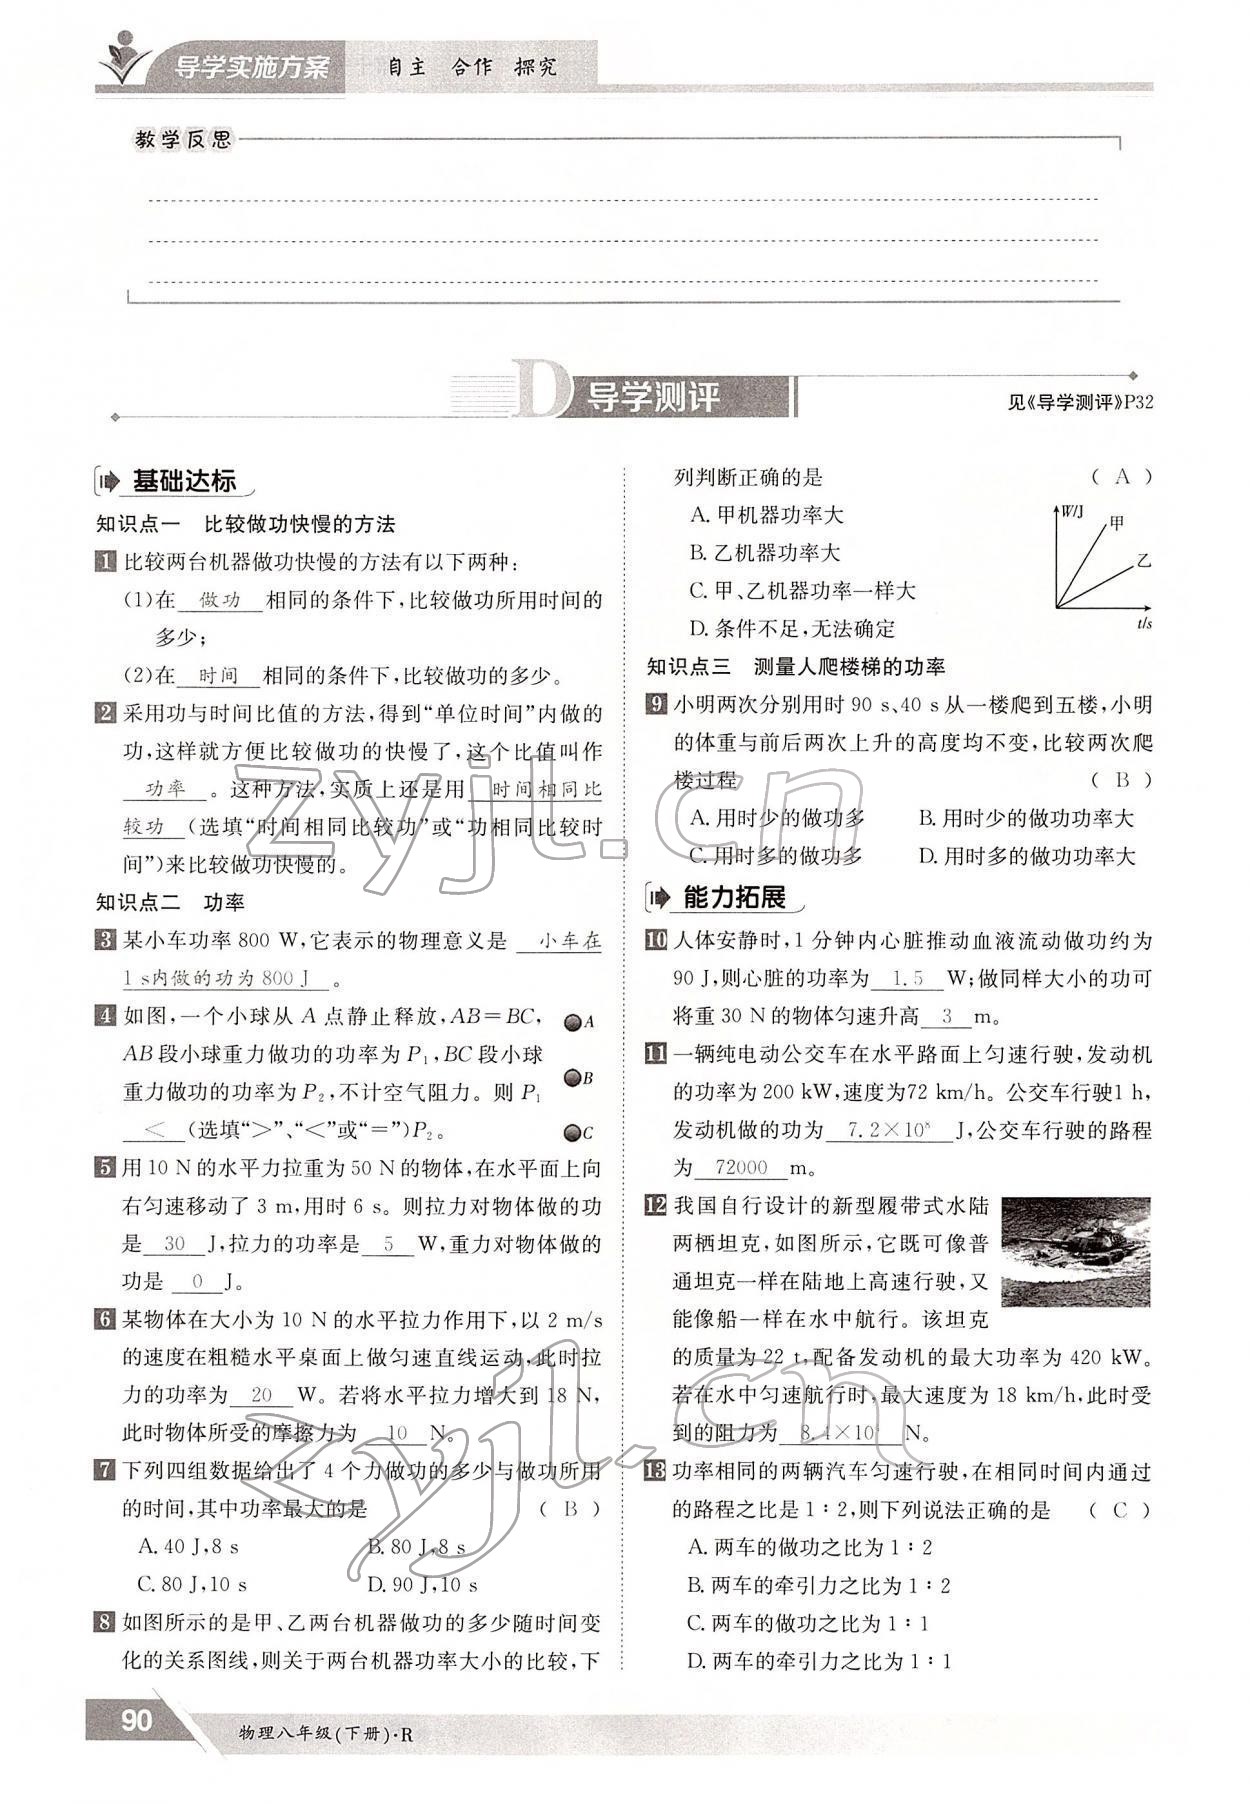 导学实施方案
自主 合作 探究
教学反思
D 导学测评
见《导学测评》P32
基础达标
知识点一 比较做功快慢的方法
1 比较两台机器做功快慢的方法有以下两种:
(1)在 做功 相同的条件下,比较做功所用时间的
多少;
(2)在 时间 相同的条件下,比较做功的多少。
2 采用功与时间比值的方法,得到“单位时间”内做的
功,这样就方便比较做功的快慢了,这个比值叫作
功率 。这种方法,实质上还是用 时间相同比
较功 (选填“时间相同比较功”或“功相同比较时
间”)来比较做功快慢的。
知识点二 功率
3 某小车功率 800 W,它表示的物理意义是 小车在
1 s内做的功为 800 J 。
4 如图,一个小球从 A 点静止释放,AB=BC,
AB 段小球重力做功的功率为 P₁,BC 段小球
重力做功的功率为 P₂,不计空气阻力。则 P₁
< (选填“>”、“<”或“=”)P₂。
A
B
C
5 用 10 N 的水平力拉重为 50 N 的物体,在水平面上向
右匀速移动了 3 m,用时 6 s。则拉力对物体做的功
是 30 J,拉力的功率是 5 W,重力对物体做的
功是 0 J。
6 某物体在大小为 10 N 的水平拉力作用下,以 2 m/s
的速度在粗糙水平桌面上做匀速直线运动,此时拉
力的功率为 20 W。若将水平拉力增大到 18 N,
此时物体所受的摩擦力为 10 N。
7 下列四组数据给出了 4 个力做功的多少与做功所用
的时间,其中功率最大的是 ( B )
A. 40 J,8 s B. 80 J,8 s
C. 80 J,10 s D. 90 J,10 s
8 如图所示的是甲、乙两台机器做功的多少随时间变
化的关系图线,则关于两台机器功率大小的比较,下
列判断正确的是 ( A )
A. 甲机器功率大
B. 乙机器功率大
C. 甲、乙机器功率一样大
D. 条件不足,无法确定
W/J
甲
乙
t/s
知识点三 测量人爬楼梯的功率
9 小明两次分别用时 90 s、40 s 从一楼爬到五楼,小明
的体重与前后两次上升的高度均不变,比较两次爬
楼过程 ( B )
A. 用时少的做功多 B. 用时少的做功功率大
C. 用时多的做功多 D. 用时多的做功功率大
能力拓展
10 人体安静时,1 分钟内心脏推动血液流动做功约为
90 J,则心脏的功率为 1.5 W;做同样大小的功可
将重 30 N 的物体匀速升高 3 m。
11 一辆纯电动公交车在水平路面上匀速行驶,发动机
的功率为 200 kW,速度为72 km/h。公交车行驶1 h,
发动机做的功为 7.2×10⁸ J,公交车行驶的路程
为 72000 m。
12 我国自行设计的新型履带式水陆
两栖坦克,如图所示,它既可像普
通坦克一样在陆地上高速行驶,又
能像船一样在水中航行。该坦克
的质量为 22 t,配备发动机的最大功率为 420 kW。
若在水中匀速航行时,最大速度为 18 km/h,此时受
到的阻力为 8.4×10⁴ N。
13 功率相同的两辆汽车匀速行驶,在相同时间内通过
的路程之比是 1∶2,则下列说法正确的是 ( C )
A. 两车的做功之比为 1∶2
B. 两车的牵引力之比为 1∶2
C. 两车的做功之比为 1∶1
D. 两车的牵引力之比为 1∶1
90
物理八年级(下册)·R
zyjl.cn
zyjl.cn